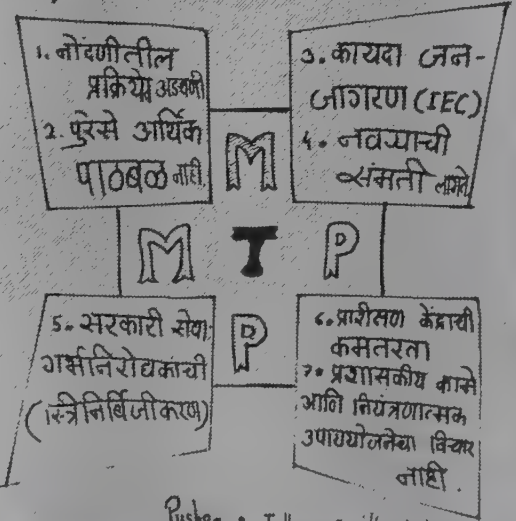 १. नोंदणीतील
प्रक्रियेत अडचणी
२. पुरेसे आर्थिक
पाठबळ नाही.
३. कायदा जन-
जागरण (IEC)
४. नवऱ्याची
संमती लागते
M
M T P
P
५. सरकारी सेवा
गर्भनिरोधकाची
(स्त्रिनिर्बिजीकरण)
६. प्रशिक्षण केंद्राची
कमतरता
७. प्रशासकीय कामे
आणि नियंत्रणात्मक
उपाययोजनेचा विचार
नाही.